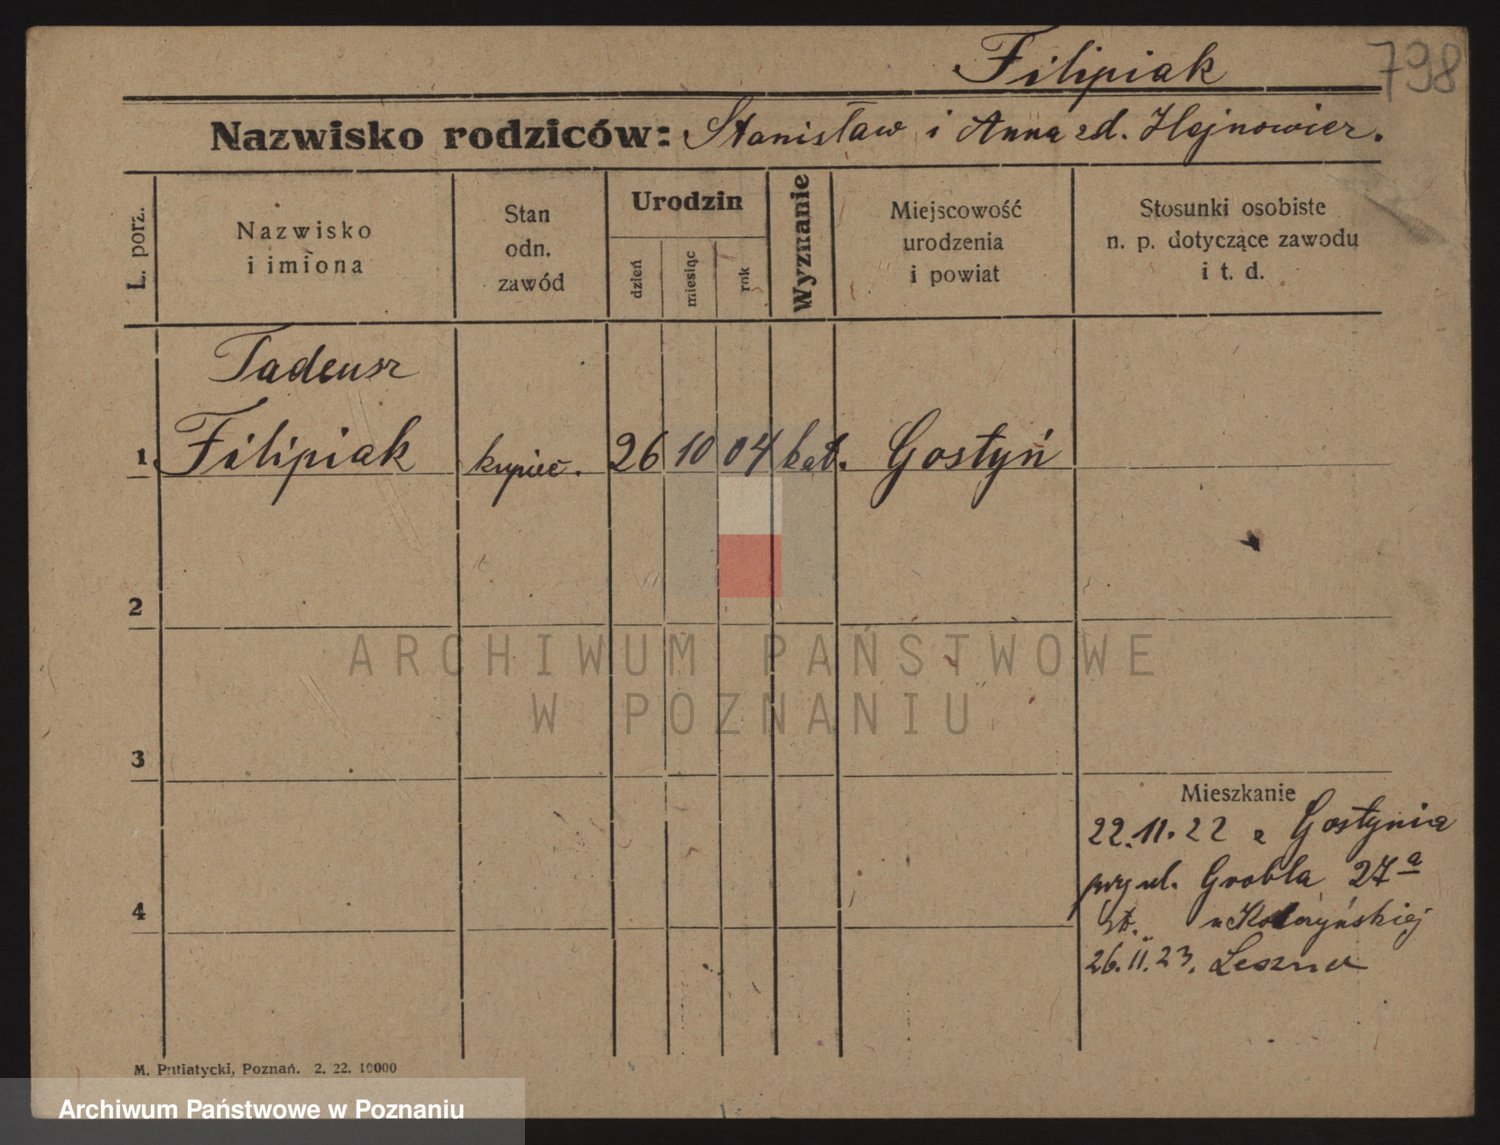 Filipiak
798
Nazwisko rodziców: Stanisław i Anna zd. Hejnowicz.
L. porz.
Nazwisko
i imiona
Stan
odn.
zawód
Urodzin
dzień
miesiąc
rok
Wyznanie
Miejscowość
urodzenia
i powiat
Stosunki osobiste
n. p. dotyczące zawodu
i t. d.
Tadeusz
1 Filipiak kupiec. 26 10 04 kat. Gostyń
2
ARCHIWUM PAŃSTWOWE
W POZNANIU
3
Mieszkanie
22.11.22 z Gostynia
przy ul. Grobla 27a
4
st. u
26.II.23. Leszna
M. Putiatycki, Poznań. 2. 22. 10000
Archiwum Państwowe w Poznaniu